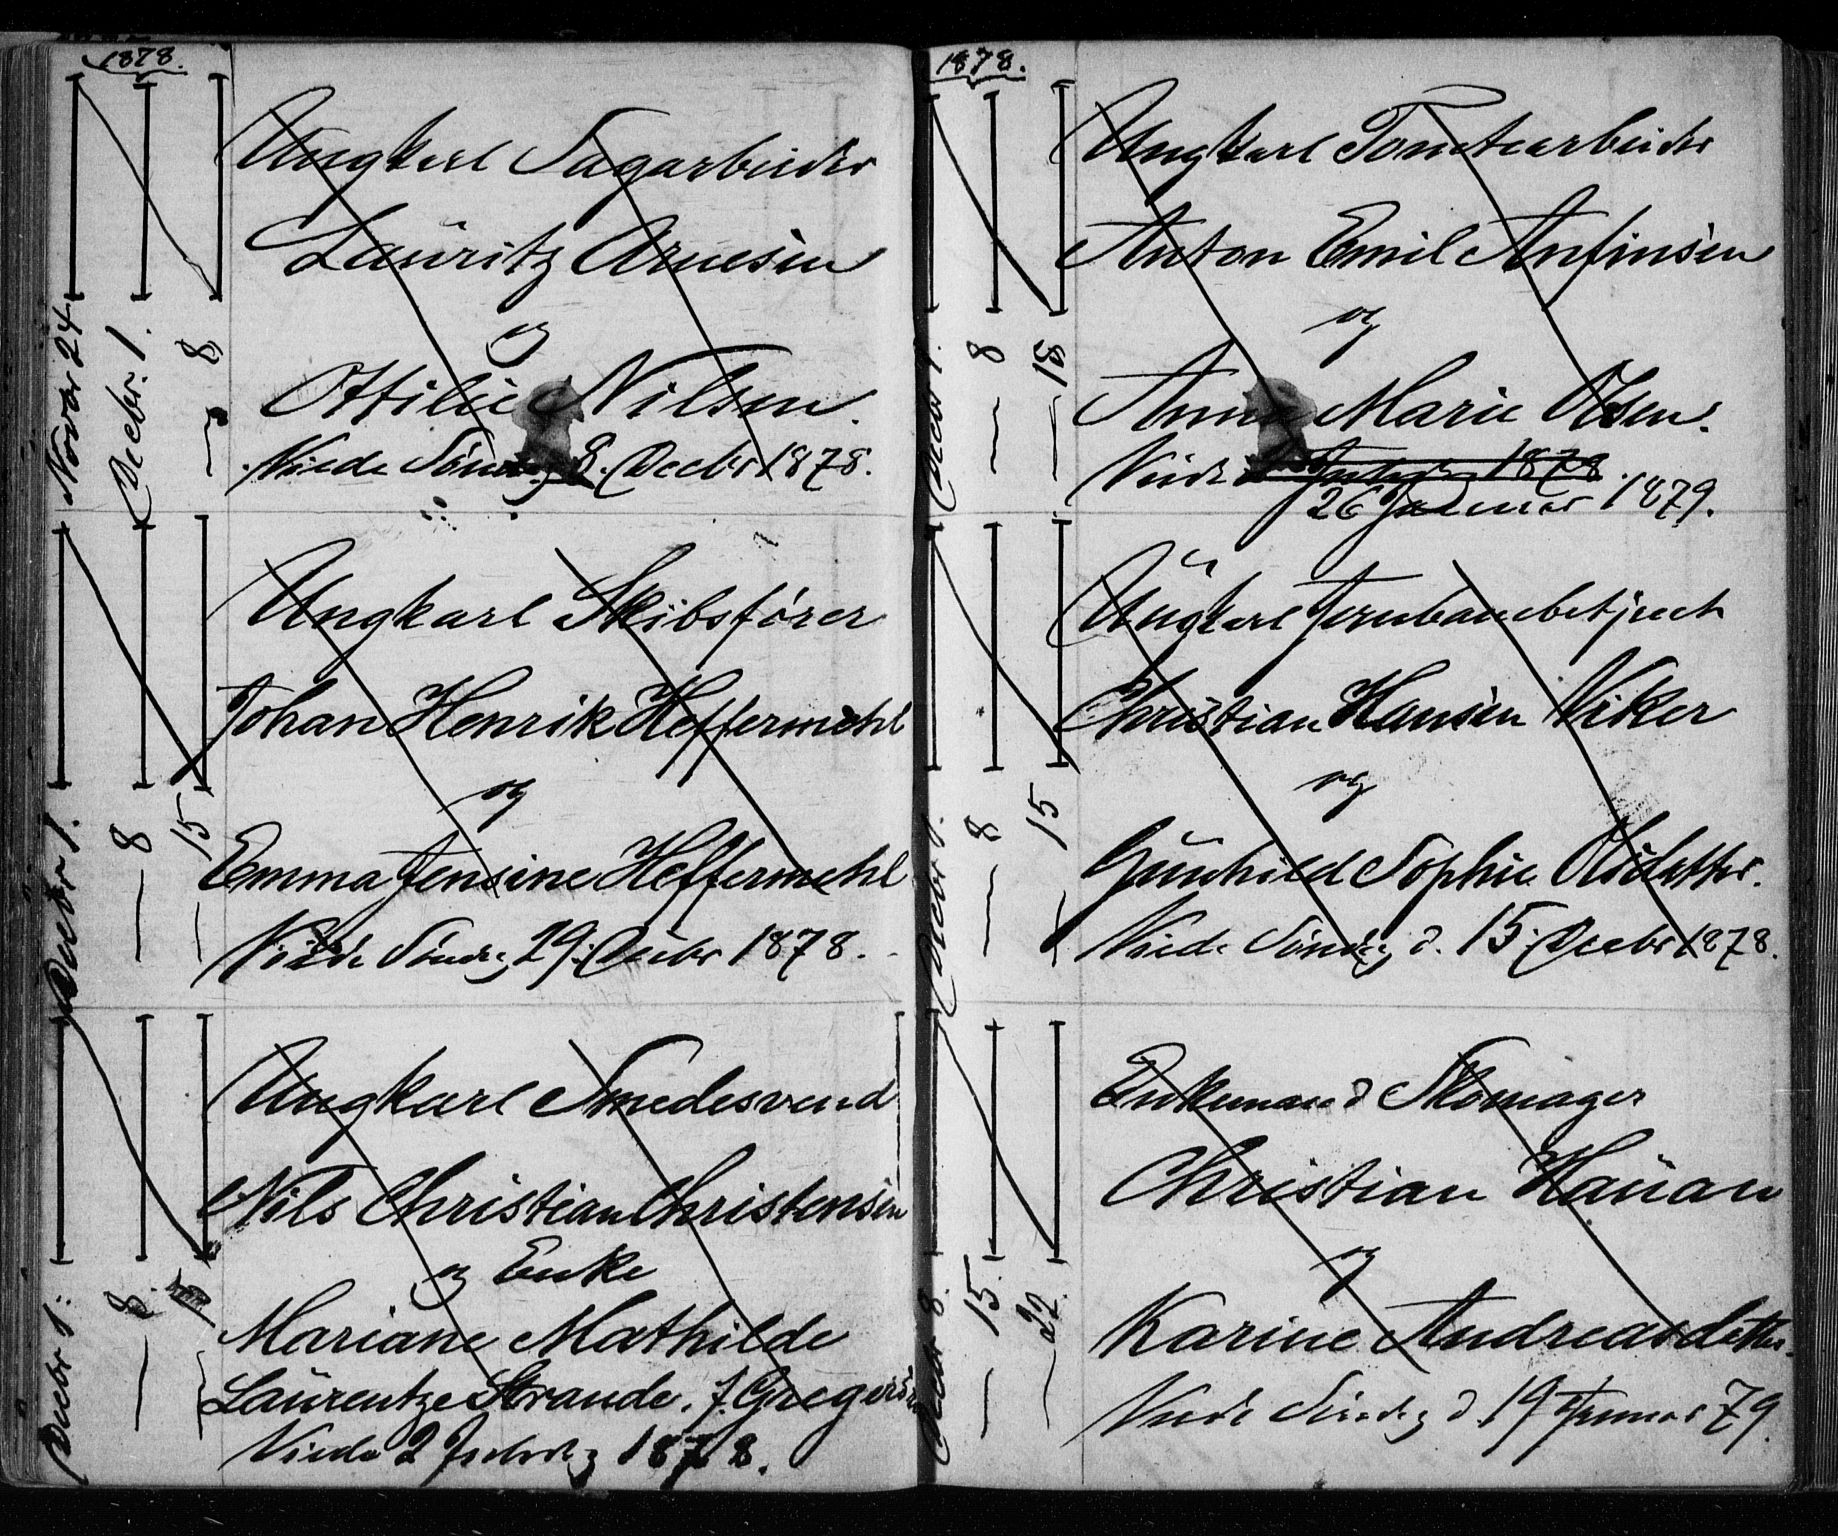 1878.
Novbr 24
Decbr. 1.
— 8
Ungkarl Sagarbeider
Lauritz Arnesen
og
Ottilie Nilsen.
Viede Søndag 8. Decbr 1878.
Decbr 1.
— 8
— 15
Ungkarl Skibsfører
Johan Henrik Heffermehl
og
Emma Jensine Heffermehl
Viede Søndag 29. Decbr 1878.
Decbr 1.
— 8.
— 15
Ungkarl Smedesvend
Nils Christian Christensen
og Enke
Mariane Mathilde
Laurentze Strande. f. Gregersen
Viede 2 Juledag 1878.
1878.
Decbr 1.
— 8
— 15
Ungkarl Tomtearbeider
Anton Emil Anfinsen
og
Anna Marie Olsen.
Viede 2 Juledag 1878.
26 Januar 1879.
Decbr 1.
— 8
— 15
Ungkarl Jernbanebetjent
Christian Hansen Viker
og
Gunhild Sophie Olsdatter.
Viede Søndag d. 15. Decbr 1878.
Decbr 8.
— 15.
— 22.
Enkemand Skomager
Christian Hauan
og
Karine Andreasdatter.
Viede Søndag d. 19 Januar 79.